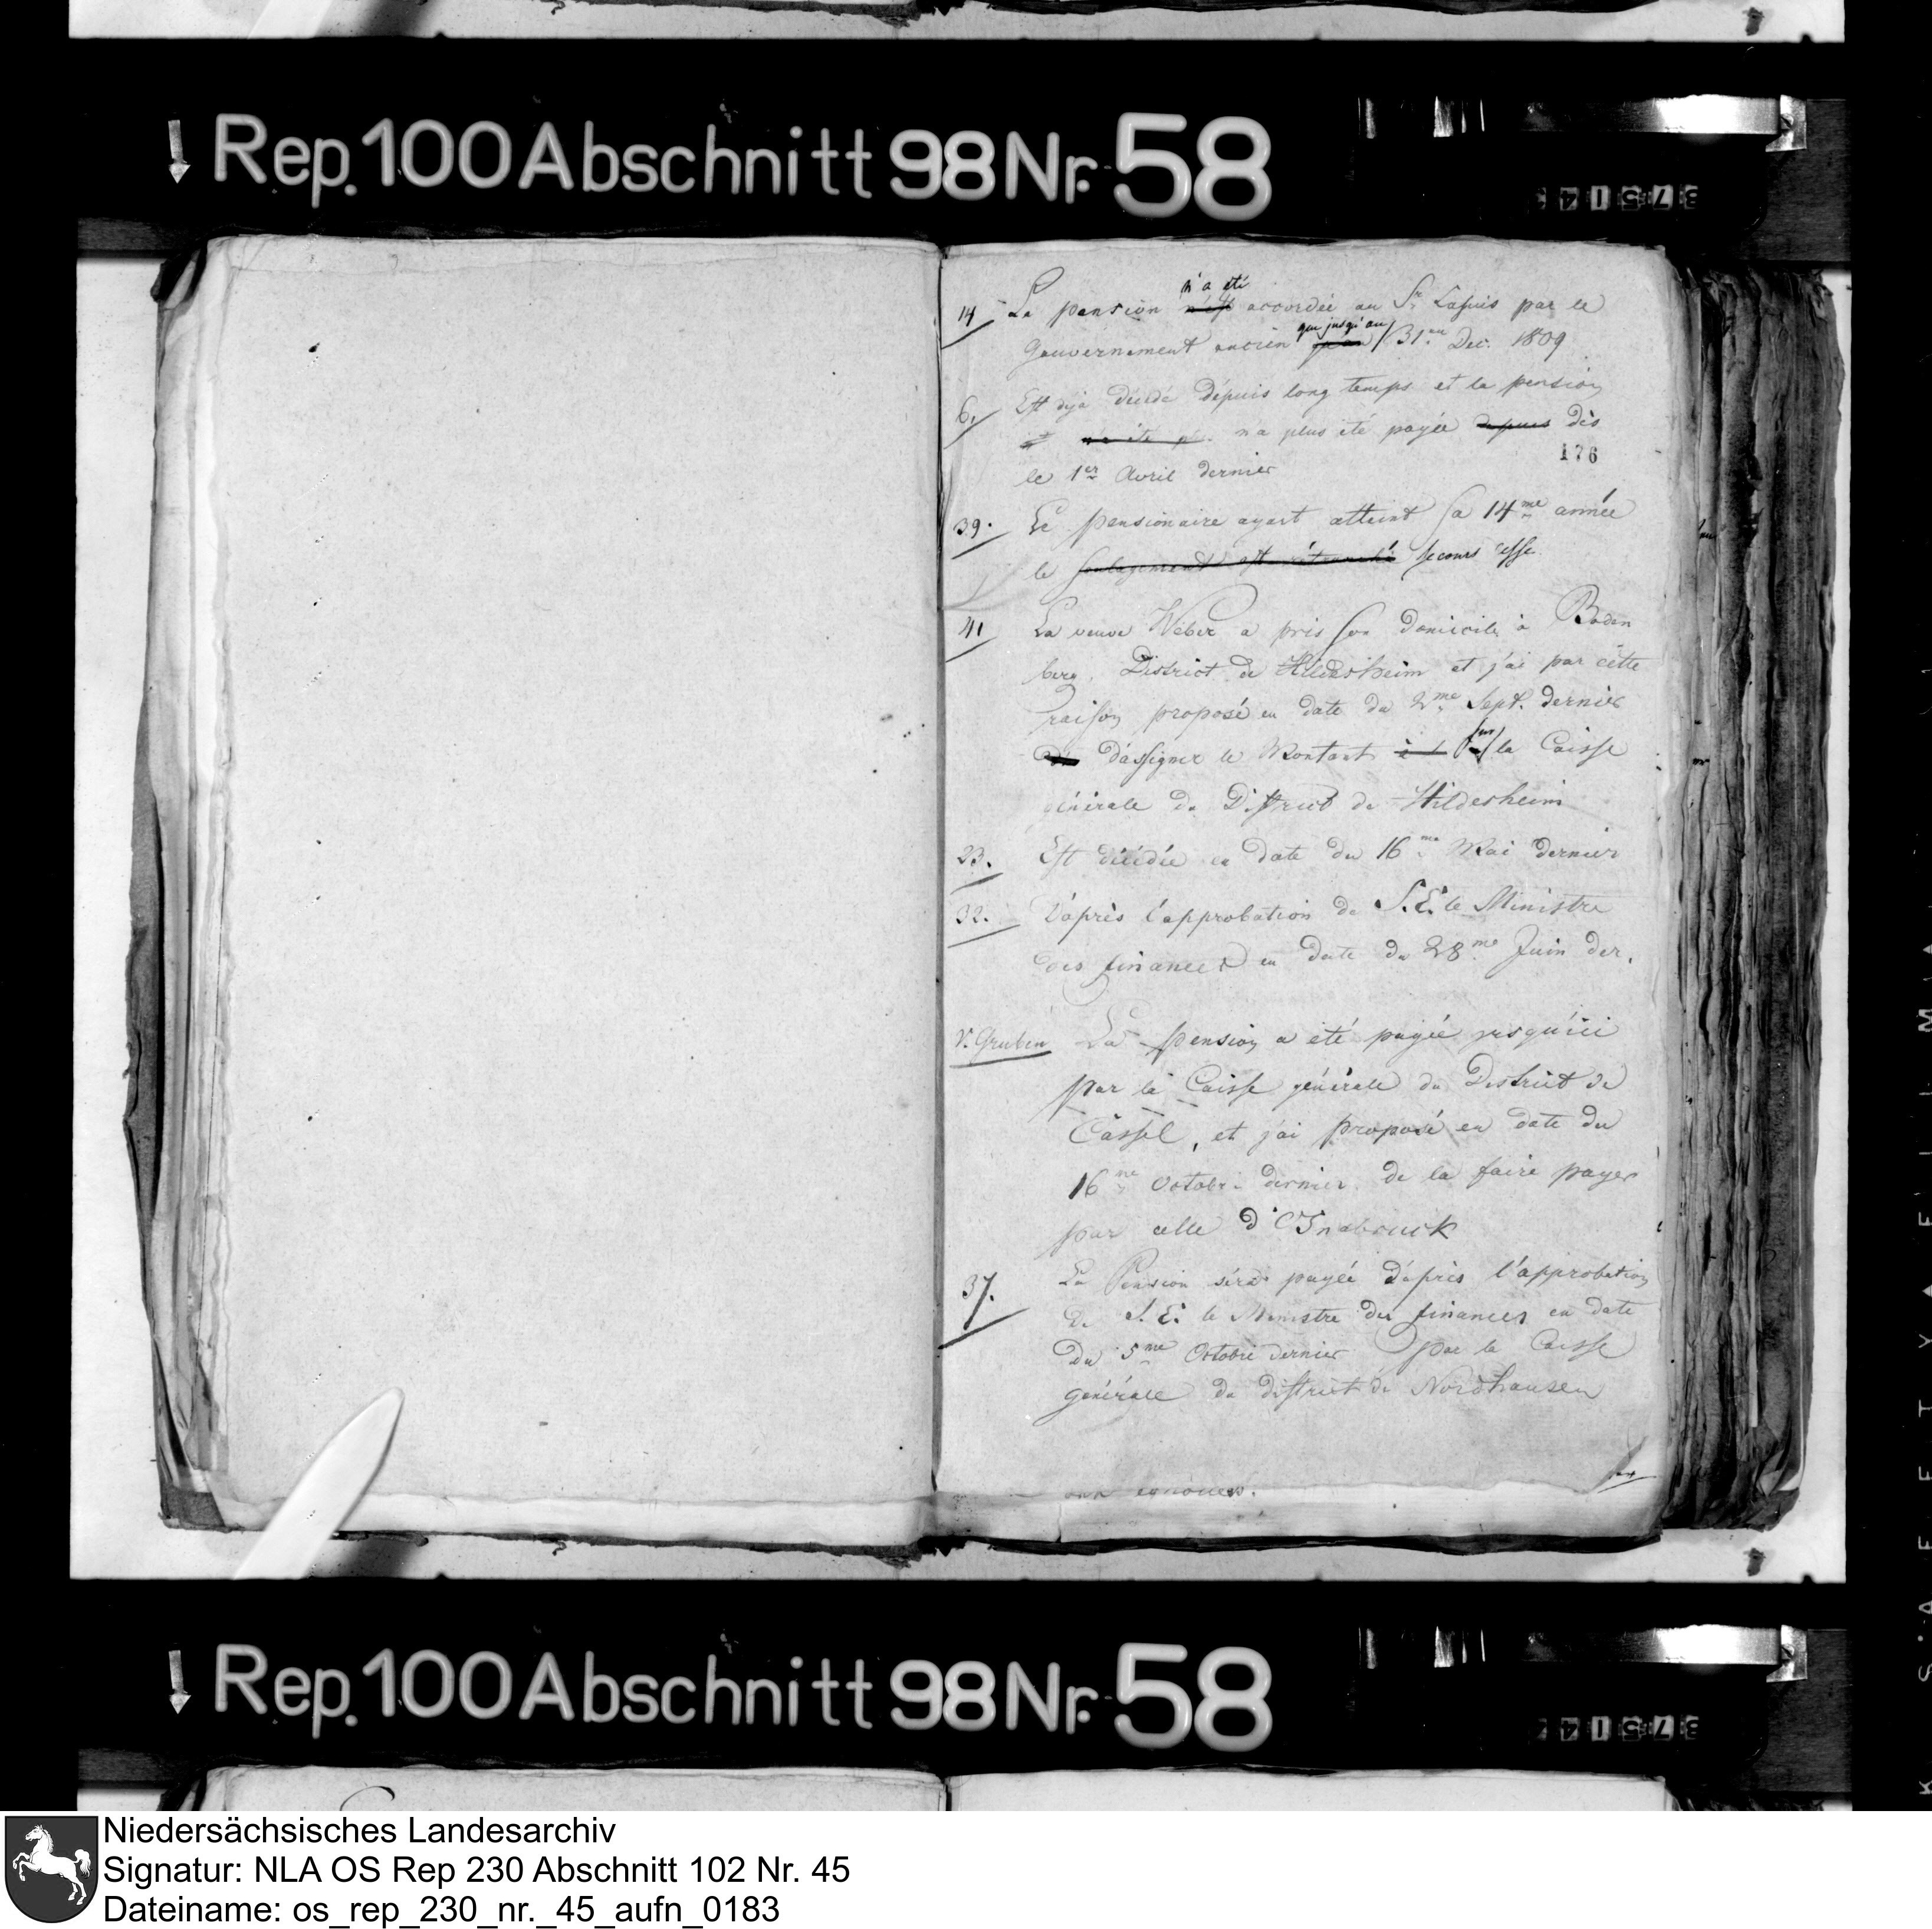 Rep. 100 Abschnitt 98 Nr. 58
37514
14 La pension n'est n'a été accordée au Sr. Lafuis par le
Gouvernement ancien que jusqu'au 31. Dec. 1809
6. Est déja décédé dépuis long temps et la pension
n'a été n'a plus été payée depuis dès
176
le 1er Avril dernier
39. Le pensionaire ayant atteint sa 14me année
le soulagement est rétranché secours cesse
41 La veuve Weber a pris son domicile à Boden
berg, District de Hildesheim et j'ai par cette
raison proposé en date du 2me Sept. dernier
d'assigner le Montant à l sur la Caisse
générale du District de Hildesheim
23. Est décédée en date du 16me Mai dernier
32. D'après l'approbation de S. E. le Ministre
des finances en date du 28me Juin der.
V. Gruben La pension a été payée jusqu'ici
par la Caisse générale du District de
Cassel, et j'ai proposé en date du
16me Octobre dernier de la faire payer
par celle d'Osnabruck
37. La Pension sera payée d'après l'approbation
de S. E. le Ministre des finances en date
du 5me Octobre dernier par la Caisse
générale du district de Nordhausen
Rep. 100 Abschnitt 98 Nr. 58
37514
Niedersächsisches Landesarchiv
Signatur: NLA OS Rep 230 Abschnitt 102 Nr. 45
Dateiname: os_rep_230_nr._45_aufn_0183